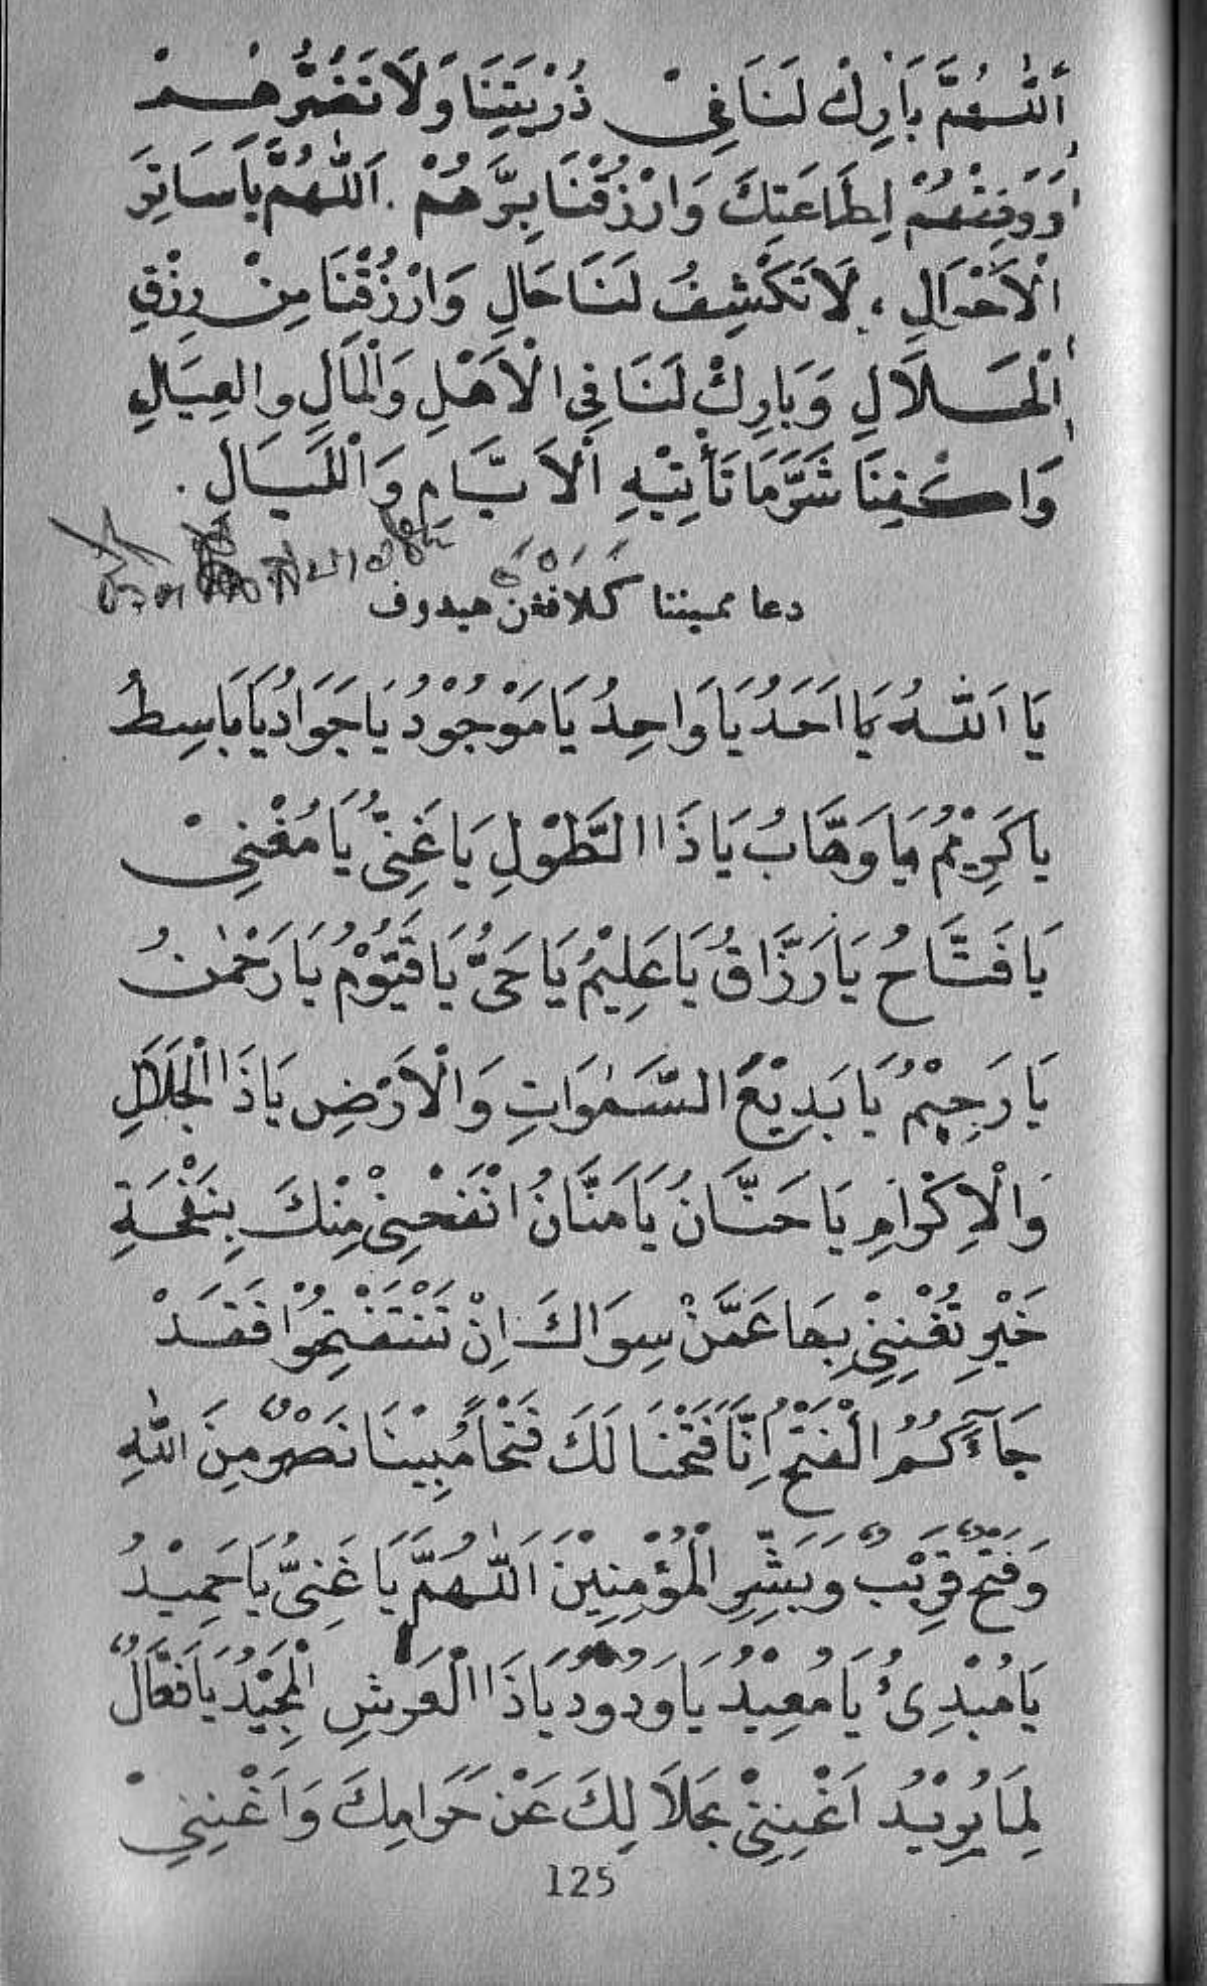 اَللّٰهُمَّ بَارِكْ لَنَا فِىْ ذُرِّيَّتِنَا وَلَا تَضُرَّهُمْ
وَوَفِّقْهُمْ لِطَاعَتِكَ وَارْزُقْنَا بِرَّهُمْ . اَللّٰهُمَّ يَا سَاتِرَ
الْاَحْوَالِ ، لَا تَكْشِفُ لَنَا حَالِ وَارْزُقْنَا مِنْ رِزْقِ
الْحَلَالِ وَبَارِكْ لَنَا فِى الْاَهْلِ وَالْمَالِ وَالعِيَالِ
وَاكْفِنَا شَرَّمَا تَأْتِيْهِ الْاَيَّامِ وَاللَّيَالِ .
دعا ممينتا كَلَاڤَڠَنْ هيدوڤ
يَا اَللّٰهُ يَا اَحَدُ يَا وَاحِدُ يَا مَوْجُوْدُ يَا جَوَادُ يَا بَاسِطُ
يَا كَرِيْمُ يَا وَهَّابُ يَا ذَا الطَّوْلِ يَا غَنِىُّ يَا مُغْنِىْ
يَا فَتَّاحُ يَا رَزَّاقُ يَا عَلِيْمُ يَا حَىُّ يَا قَيُّوْمُ يَا رَحْمٰنُ
يَا رَحِيْمُ يَا بَدِيْعَ السَّمٰوَاتِ وَالْاَرْضِ يَا ذَا الْجَلَالِ
وَالْاِكْرَامِ يَا حَنَّانُ يَا مَنَّانُ انْفَحْنِىْ مِنْكَ بِنَفْحَةِ
خَيْرٍ تُغْنِنِىْ بِهَا عَمَّنْ سِوَاكَ اِنْ تَسْتَفْتِحُوْا فَقَدْ
جَآءَكُمُ الْفَتْحُ اِنَّا فَتَحْنَا لَكَ فَتْحًا مُبِيْنًا نَصْرٌ مِنَ اللّٰهِ
وَفَتْحٌ قَرِيْبٌ وَبَشِّرِ الْمُؤْمِنِيْنَ اَللّٰهُمَّ يَا غَنِىُّ يَا حَمِيْدُ
يَا مُبْدِئُ يَا مُعِيْدُ يَا وَدُوْدُ يَا ذَا الْعَرْشِ الْمَجِيْدُ يَا فَعَّالٌ
لِمَا يُرِيْدُ اَغْنِنِىْ بِحَلَالِكَ عَنْ حَرَامِكَ وَاَغْنِنِىْ
125